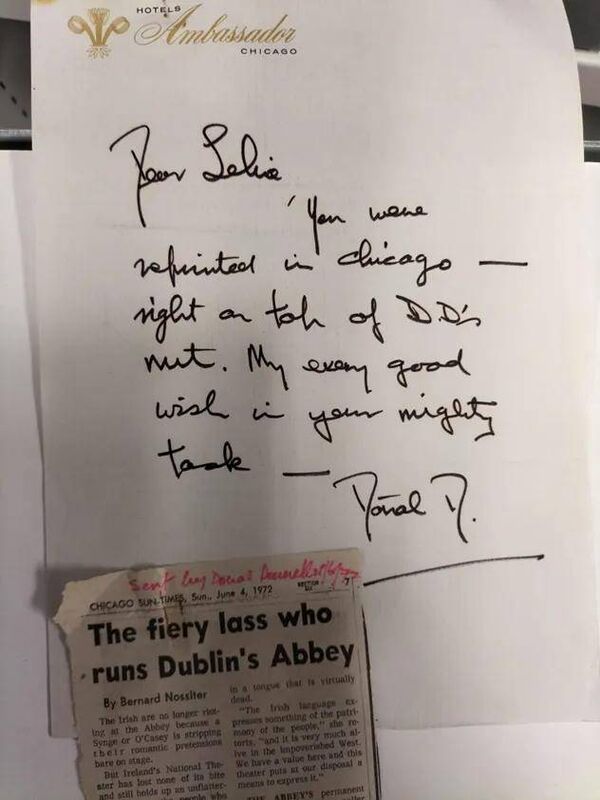 HOTELS
Ambassador
CHICAGO
Dear Lelia
You were
reprinted in Chicago —
right on top of D.D's
nut. My every good
wish in your mighty
task —
Dónal D.
Sent by Donal Donnelly
CHICAGO SUN-TIMES, Sun., June 4, 1972 SECTION 7
The fiery lass who
runs Dublin's Abbey
By Bernard Nossiter
The Irish are no longer riot-
ing at the Abbey because a
Synge or O'Casey is stripping
their romantic pretensions
bare on stage.
But Ireland's National The-
ater has lost none of its bite
and still holds up an unflatter-
people who
in a tongue that is virtually
dead.
"The Irish language ex-
presses something of the patri-
mony of the people," she re-
torts, "and it is very much al-
ive in the impoverished West.
We have a value here and this
theater puts at our disposal a
means to express it."
THE ABBEY'S permanent